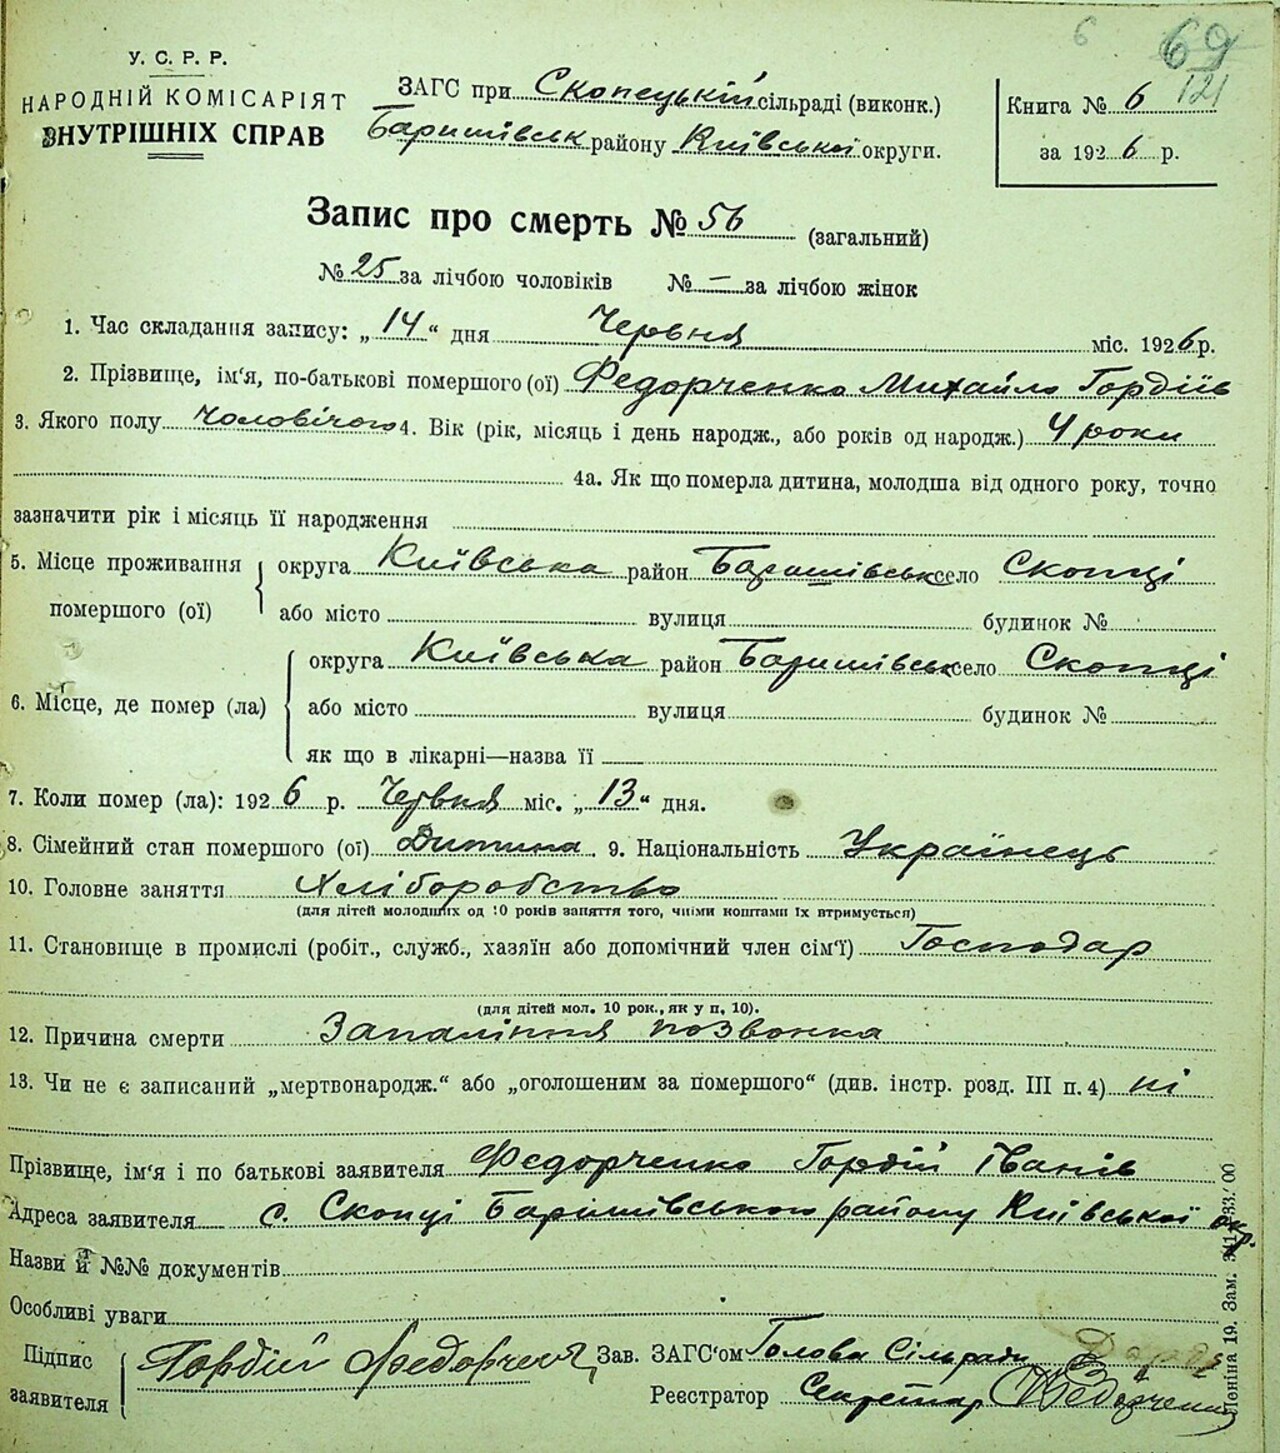 6 69
121
У. С. Р. Р.
НАРОДНІЙ КОМІСАРІЯТ
ВНУТРІШНІХ СПРАВ
ЗАГС при Скопецькій сільраді (виконк.)
Баришівськ району Київської округи.
Книга № 6
за 1926 р.
Запис про смерть № 56 (загальний)
№ 25 за лічбою чоловіків № — за лічбою жінок
1. Час складання запису: „14“ дня Червня міс. 1926 р.
2. Прізвище, ім'я, по-батькові помершого (ої) Федорченко Михайло Гордіїв
3. Якого полу Чоловічого 4. Вік (рік, місяць і день народж., або років од народж.) 4 роки
4а. Як що померла дитина, молодша від одного року, точно
зазначити рік і місяць її народження
5. Місце проживання помершого (ої) округа Київська район Баришівськ село Скопці
або місто вулиця будинок №
6. Місце, де помер (ла) округа Київська район Баришівськ село Скопці
або місто вулиця будинок №
як що в лікарні—назва її
7. Коли помер (ла): 1926 р. Червня міс. „13“ дня.
8. Сімейний стан помершого (ої) Дитина. 9. Національність Українець
10. Головне заняття Хліборобство
(для дітей молодших од 10 років заняття того, чиїми коштами їх втримується)
11. Становище в промислі (робіт., служб., хазяїн або допомічний член сім'ї) Господар
(для дітей мол. 10 рок., як у п. 10).
12. Причина смерти Запаління позвонка
13. Чи не є записаний „мертвонародж.“ або „оголошеним за помершого“ (див. інстр. розд. III п. 4) ні
Прізвище, ім'я і по батькові заявителя Федорченко Гордій Іванів
Адреса заявителя с. Скопці Баришівського району Київської окр.
Назви й №№ документів
Особливі уваги
Підпис заявителя Гордій Федорченко Зав. ЗАГС'ом Голова Сільради
Реєстратор Секретар Федорченко
Леніна 19. Зам.